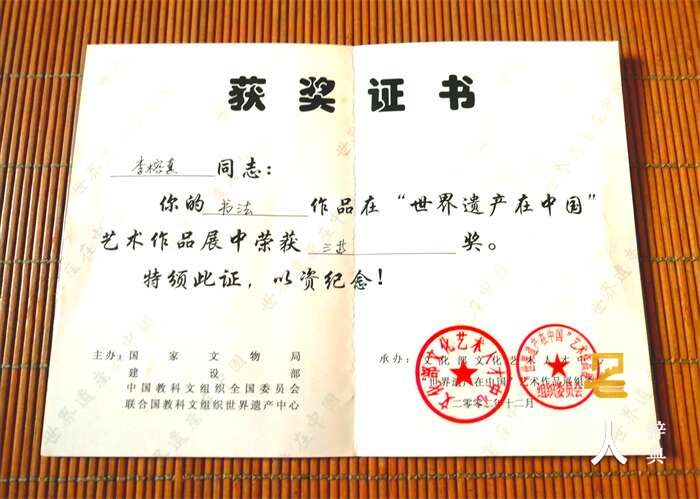 获奖证书
李榕真 同志:
你的 书法 作品在“世界遗产在中国”
艺术作品展中荣获 三等 奖。
特颁此证,以资纪念!
主办:国家文物局
建设部
中国教科文组织全国委员会
联合国教科文组织世界遗产中心
承办:文化部文化艺术人才中心
“世界遗产在中国”艺术作品展组
十二月
文化部文化艺术人才中心
组织委员会
人
辞典